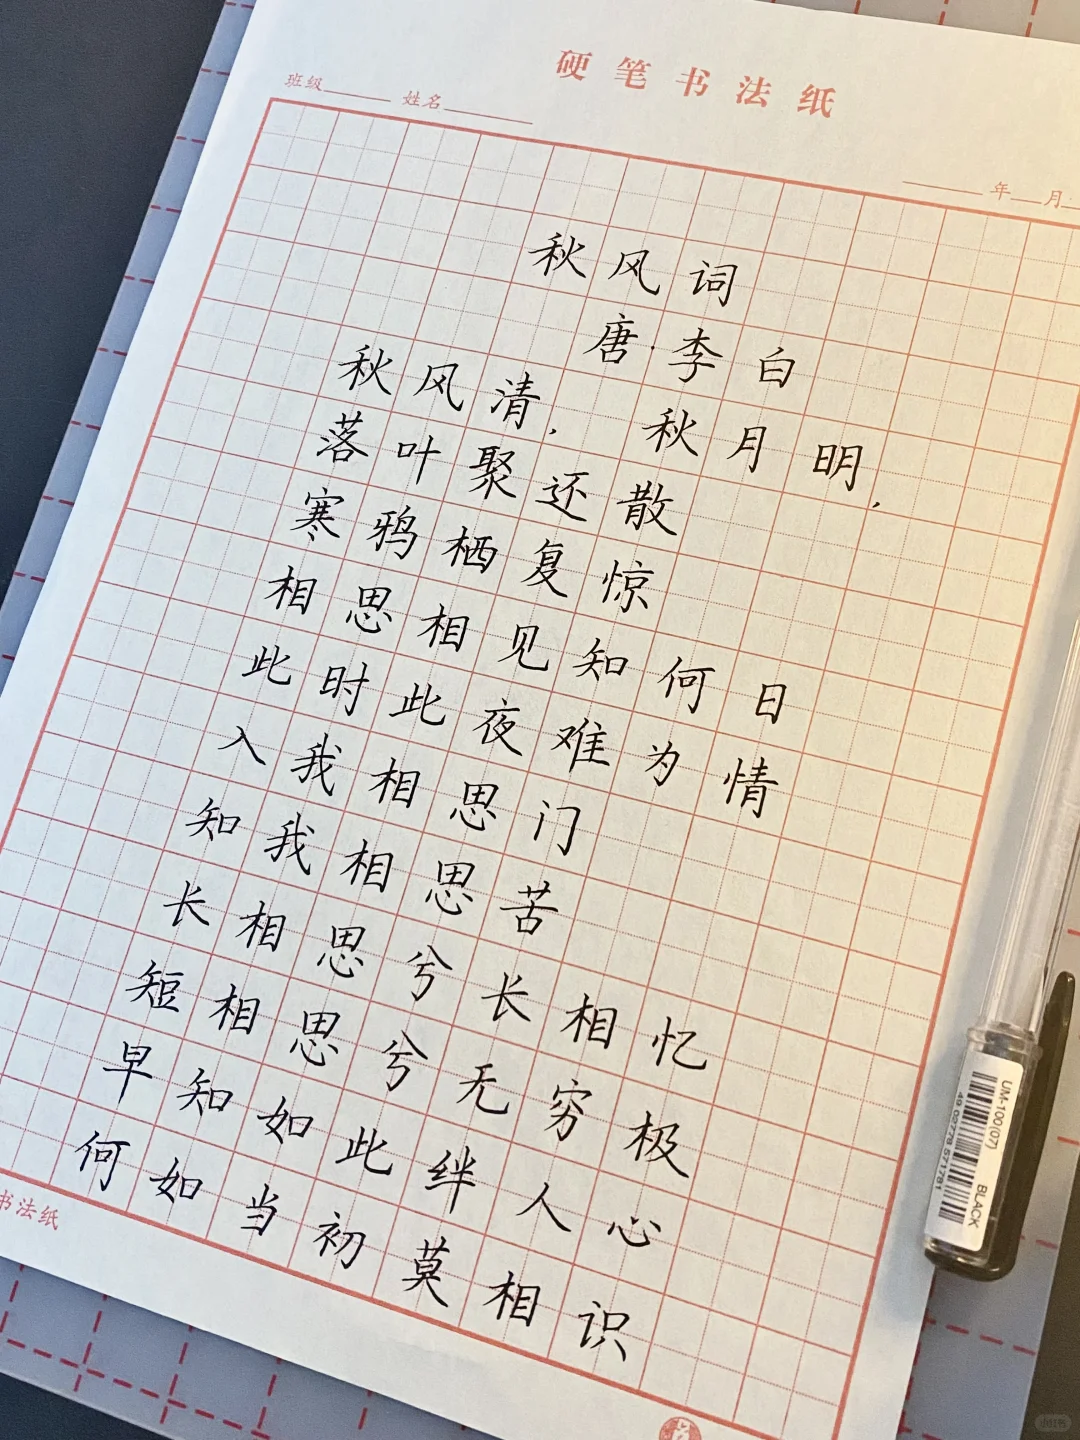 硬笔书法纸
班级 姓名
年 月
秋风词
唐·李白
秋风清， 秋月明，
落叶聚还散
寒鸦栖复惊
相思相见知何日
此时此夜难为情
入我相思门
知我相思苦
长相思兮长相忆
短相思兮无穷极
早知如此绊人心
何如当初莫相识
书法纸
UM-100(07) BLACK
小红书